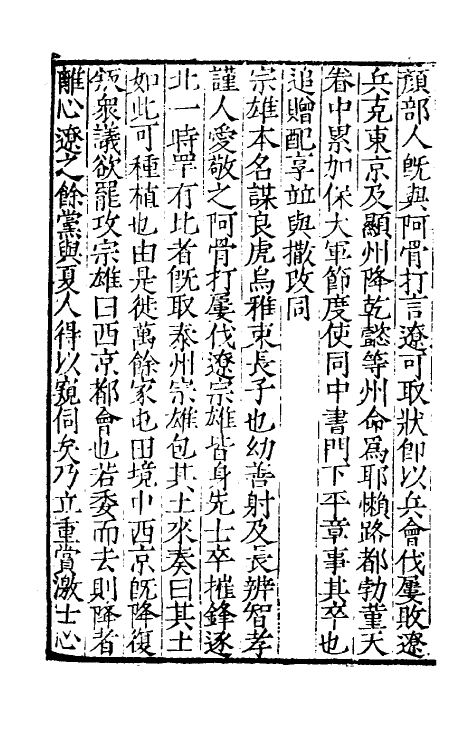 顏部人既與阿骨打言遼可取狀即以兵會伐屢敗遼
兵克東京及顯州降乾懿等州命爲耶懶路都勃堇天
眷中累加保大軍節度使同中書門下平章事其卒也
追贈配享並與撒改同
宗雄本名謀良虎烏雅束長子也幼善射及長辨智孝
謹人愛敬之阿骨打屢伐遼宗雄皆身先士卒摧鋒逐
北一時罕有比者旣取泰州宗雄包其土來奏曰其土
如此可種植也由是徙萬餘家屯田境中西京旣降復
叛衆議欲罷攻宗雄曰西京都會也若委而去則降者
離心遼之餘黨與夏人得以窺伺矣乃立重賞激士心